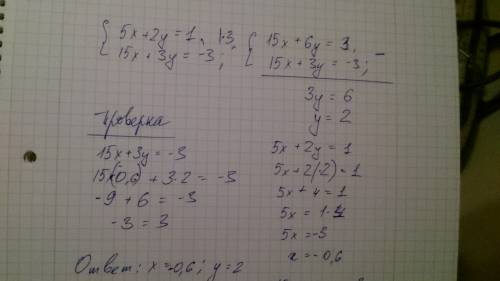 { 5x+2y=1, |·3,
{ 15x+3y=-3;
{ 15x+6y=3,
{ 15x+3y=-3; -
3y=6
y=2
5x+2y=1
5x+2·(2)=1
5x+4=1
5x=1-4
5x=-3
x=-0,6
Проверка
15x+3y=-3
15·(-0,6)+3·2=-3
-9+6=-3
-3=3
Ответ: x=-0,6; y=2